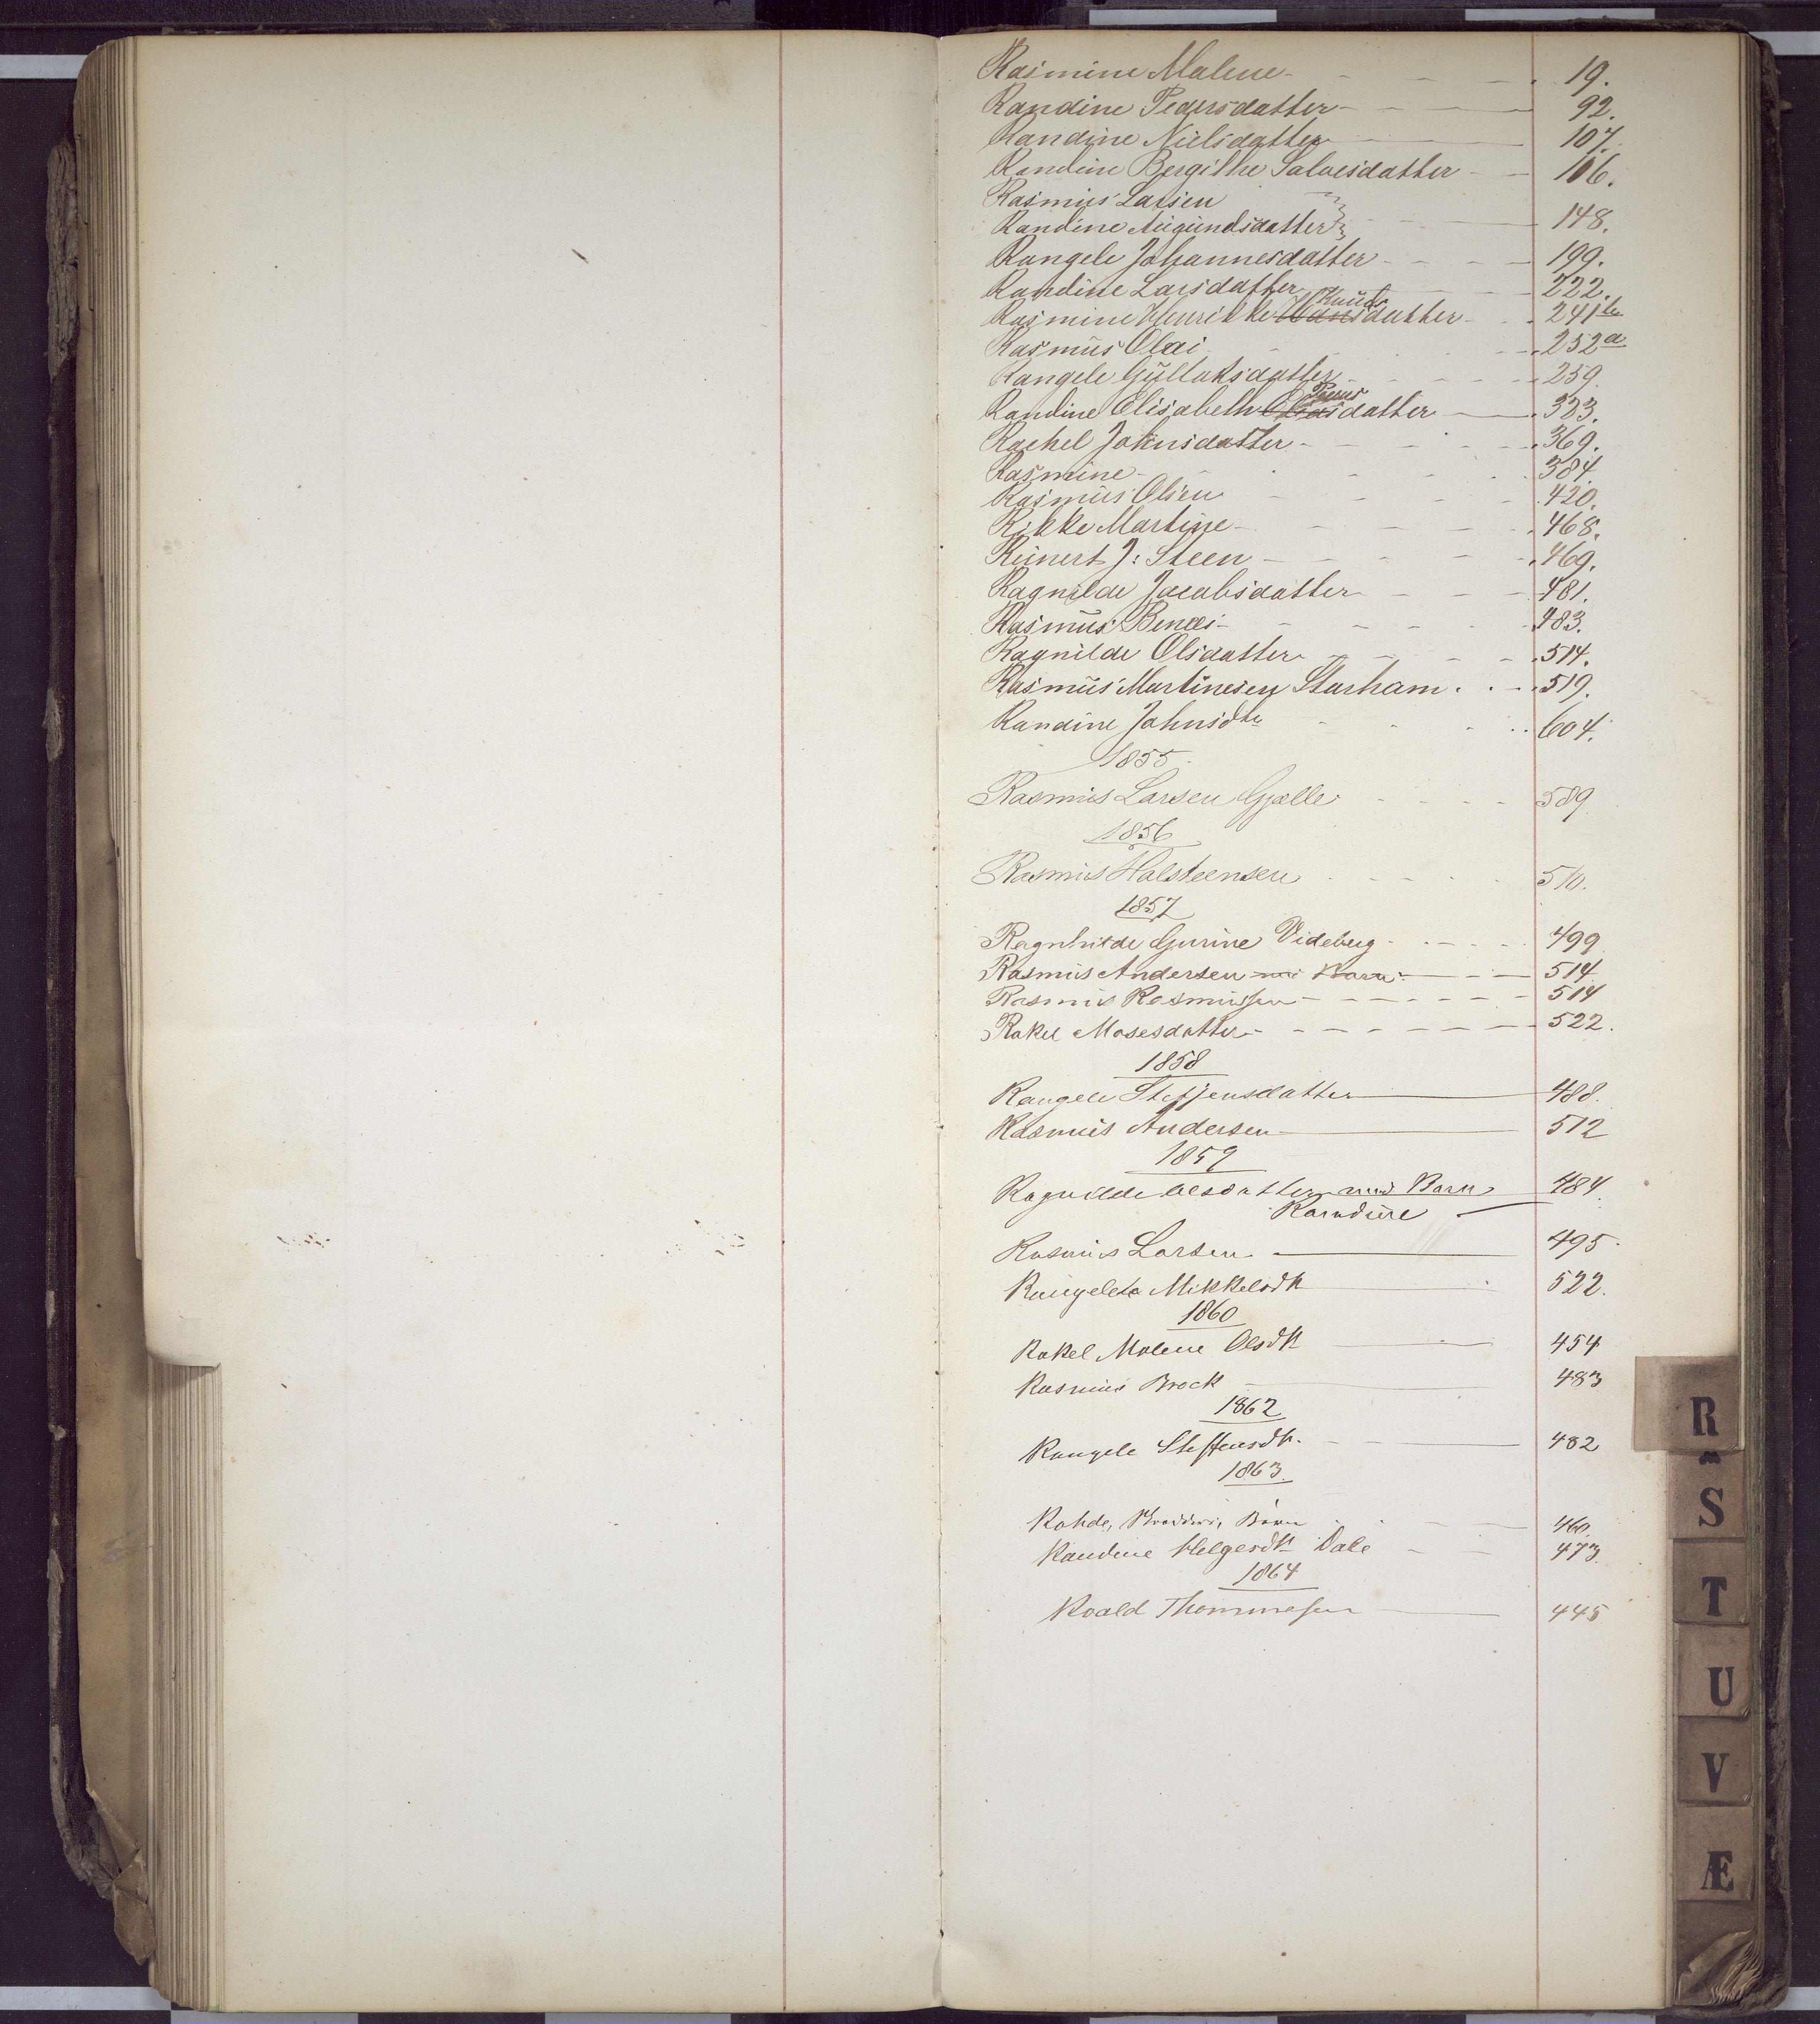 Rasmine Malene - - - 19.
Randine Pedersdatter - - - 92.
Randine Nielsdatter 107.
Randine Bergithe Salvesdatter - - 106.
Rasmus Larsen
Randine Augundsdatter } - - - 148.
Rangele Johannesdatter - - - - 199.
Randine Larsdatter 222.
Knuds
Rasmine Henrikke Hansdatter - - 241b
Rasmus Olai - - - 252a
Rangele Gullaksdatter - - - 259.
Peers
Randine Elisabeth Olasdatter - 323.
Rachel Johnsdatter - - - - 369.
Rasmine - - - - 384.
Rasmus Olsen - - - - 420.
Rikke Martine - - - - 468.
Reinert J. Steen - - - - 469.
Ragnilde Jacobsdatter - - - 481.
Rasmus Benoei - - - - 483.
Ragnilde Olsdatter - - - - 514.
Rasmus Martinesen Starham . . - 519.
Randine Johnsdtr - - - 604.
1855.
Rasmus Larsen Gjælle - - - - 589
1856
Rasmus Halsteensen - - - - 510.
1857
Ragnhilde Gurine Videberg - - - - 499
Rasmus Andersen med Barn - - - 514
Rasmus Rasmussen - - - - - 514
Rakel Mosesdatter - - - - - 522.
1858
Rangele Steffensdatter 488.
Rasmus Andersen 512
1859
Ragnilde Olsdatter med Barn 484.
Randine -
Rasmus Larsen 495.
Rangele Mikkelsdtr 522.
1860
Rakel Malene Olsdtr 454
Rasmus Brock 483
1862
Rangele Steffensdtr. - - 482
1863.
Rohde, Børn - - - 460.
Randine Helgesdtr Dale - - 473.
1864
Roald Thommesen 445
R
S
T
U
V
Æ